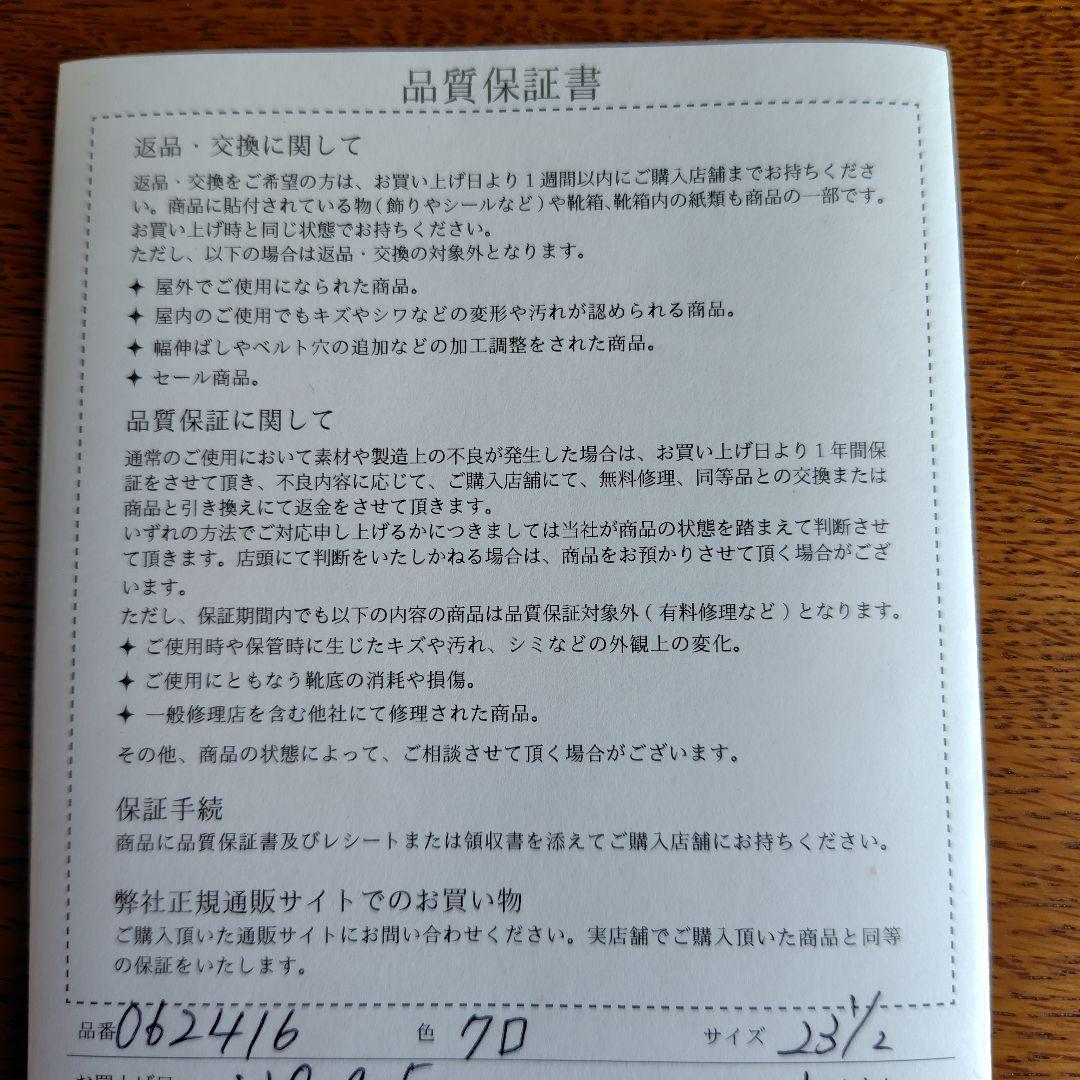 品質保証書
返品・交換に関して
返品・交換をご希望の方は、お買い上げ日より１週間以内にご購入店舗までお持ちくださ
い。商品に貼付されている物(飾りやシールなど)や靴箱、靴箱内の紙類も商品の一部です。
お買い上げ時と同じ状態でお持ちください。
ただし、以下の場合は返品・交換の対象外となります。
✦ 屋外でご使用になられた商品。
✦ 屋内のご使用でもキズやシワなどの変形や汚れが認められる商品。
✦ 幅伸ばしやベルト穴の追加などの加工調整をされた商品。
✦ セール商品。
品質保証に関して
通常のご使用において素材や製造上の不良が発生した場合は、お買い上げ日より１年間保
証をさせて頂き、不良内容に応じて、ご購入店舗にて、無料修理、同等品との交換または
商品と引き換えにて返金をさせて頂きます。
いずれの方法でご対応申し上げるかにつきましては当社が商品の状態を踏まえて判断させ
て頂きます。店頭にて判断をいたしかねる場合は、商品をお預かりさせて頂く場合がござ
います。
ただし、保証期間内でも以下の内容の商品は品質保証対象外(有料修理など)となります。
✦ ご使用時や保管時に生じたキズや汚れ、シミなどの外観上の変化。
✦ ご使用にともなう靴底の消耗や損傷。
✦ 一般修理店を含む他社にて修理された商品。
その他、商品の状態によって、ご相談させて頂く場合がございます。
保証手続
商品に品質保証書及びレシートまたは領収書を添えてご購入店舗にお持ちください。
弊社正規通販サイトでのお買い物
ご購入頂いた通販サイトにお問い合わせください。実店舗でご購入頂いた商品と同等
の保証をいたします。
品番 062416 色 クロ サイズ 23 1/2